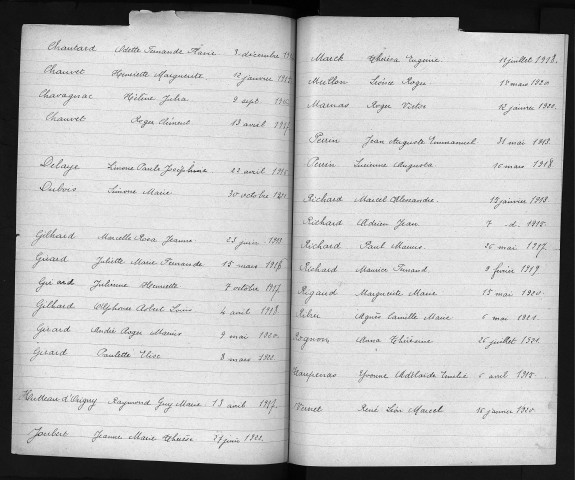 Chautard Odette Fernande Flavie 3 décembre
Chauvet Henriette Marguerite 12 janvier
Chavagnac Hélène Julia 9 sept.
Chauvet Roger Clément 13 avril 1917
Delaye Simone Paule Joséphine 22 avril
Dubois Simone Marie 30 octobre
Gilhard Marcelle Rosa Jeanne 23 juin
Girard Juliette Marie Fernande 15 mars 1916
Girard Julienne Henriette 7 octobre 1917
Gilhard Alphonse Albert Louis 4 avril 1918
Girard André Roger Marius 9 mai 1920
Girard Paulette Elise 8 mars
Raymond Guy Marie 13 avril 1917
Joubert Jeanne Marie Thérèse 27 juin
Marck Eugénie juillet 1918
Léonce Roger 15 mars 1920
Marnas Roger Victor 12 janvier 1920
Perrin Jean Auguste Emmanuel 31 mai 1913
Perrin Lucienne Augusta 10 mars 1918
Richard Marcel Alexandre 12 janvier
Richard Adrien Jean 7 d. 1915
Richard Paul Marius mai 1917
Richard Maurice Fernand 9 février 1919
Rigaud Marguerite Marie 15 mai 1920
Agnès Camille Marie 6 mai 1921
Rognon Anna juillet 1921
Yvonne Adélaïde Emélie 5 avril 1915
Vernet René Léon Marcel 15 janvier 1920